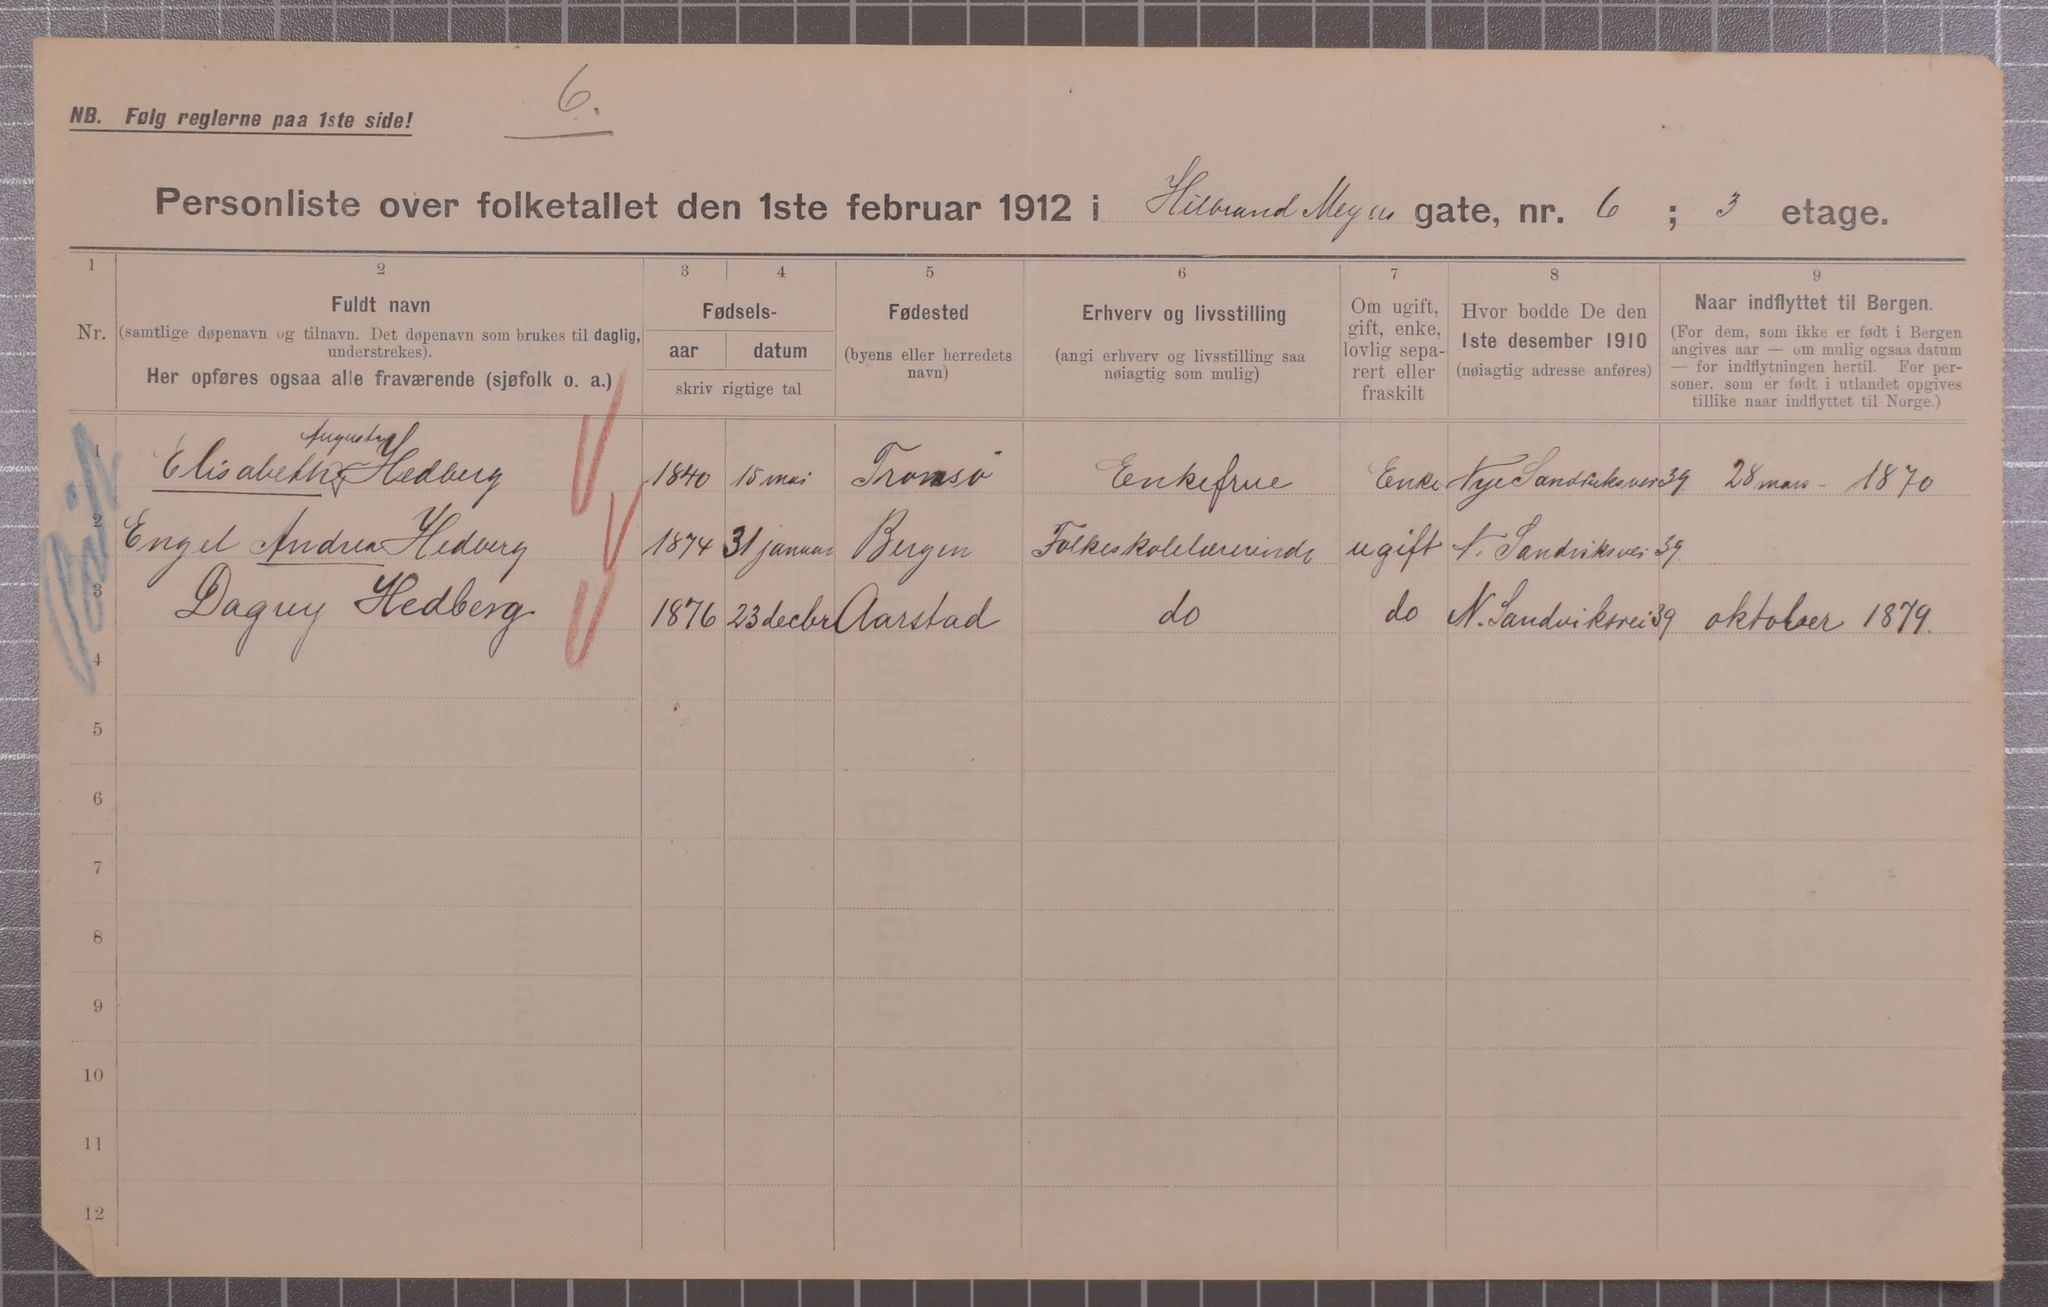 6.
NB. Følg reglerne paa 1ste side!
Personliste over folketallet den 1ste februar 1912 i Hilbrand Meyers gate, nr. 6 ; 3 etage.
1 2 3 4 5 6 7 8 9
Nr.
Fuldt navn
(samtlige døpenavn og tilnavn. Det døpenavn som brukes til daglig,
understrekes).
Her opføres ogsaa alle fraværende (sjøfolk o. a.)
Fødsels-
aar datum
skriv rigtige tal
Fødested
(byens eller herredets
navn)
Erhverv og livsstilling
(angi erhverv og livsstilling saa
nøiagtig som mulig)
Om ugift,
gift, enke,
lovlig sepa-
rert eller
fraskilt
Hvor bodde De den
1ste desember 1910
(nøiagtig adresse anføres)
Naar indflyttet til Bergen.
(For dem, som ikke er født i Bergen
angives aar — om mulig ogsaa datum
— for indflytningen hertil. For per-
soner, som er født i utlandet opgives
tillike naar indflyttet til Norge.)
Augusta
1 Elisabeth Hedberg 1840 15 mai Tromsø Enkefrue Enke Nye Sandviksvei 39. 28 mars - 1870
2 Engel Andrea Hedberg 1874 31 januar Bergen Folkeskolelærerinde ugift N. Sandviksvei 39.
3 Dagny Hedberg 1876 23 decbr Aarstad do do N. Sandviksvei 39 oktober 1879.
4
5
6
7
8
9
10
11
12